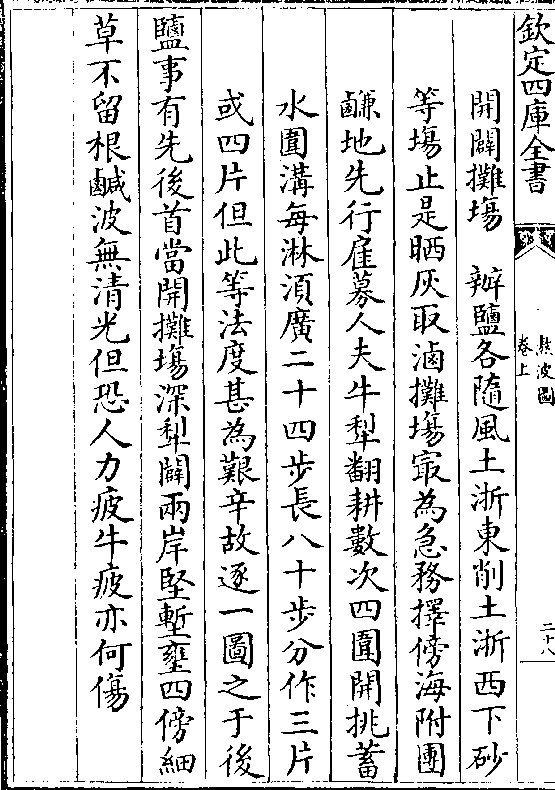 欽定四庫全書
熬波圖
卷上
二十八
開闢攤塲　辦鹽各隨風土浙東削土浙西下砂
等塲止是晒灰取滷攤塲㝡為急務擇傍海附團
鹻地先行雇募人夫牛犁翻耕數次四圍開挑蓄
水圍溝每淋湏廣二十四步長八十步分作三片
或四片但此等法度甚為艱辛故逐一圖之于後
鹽事有先後首當開攤塲深犁闢兩岸堅塹壅四傍細
草不留根鹹波無清光但恐人力疲牛疲亦何傷